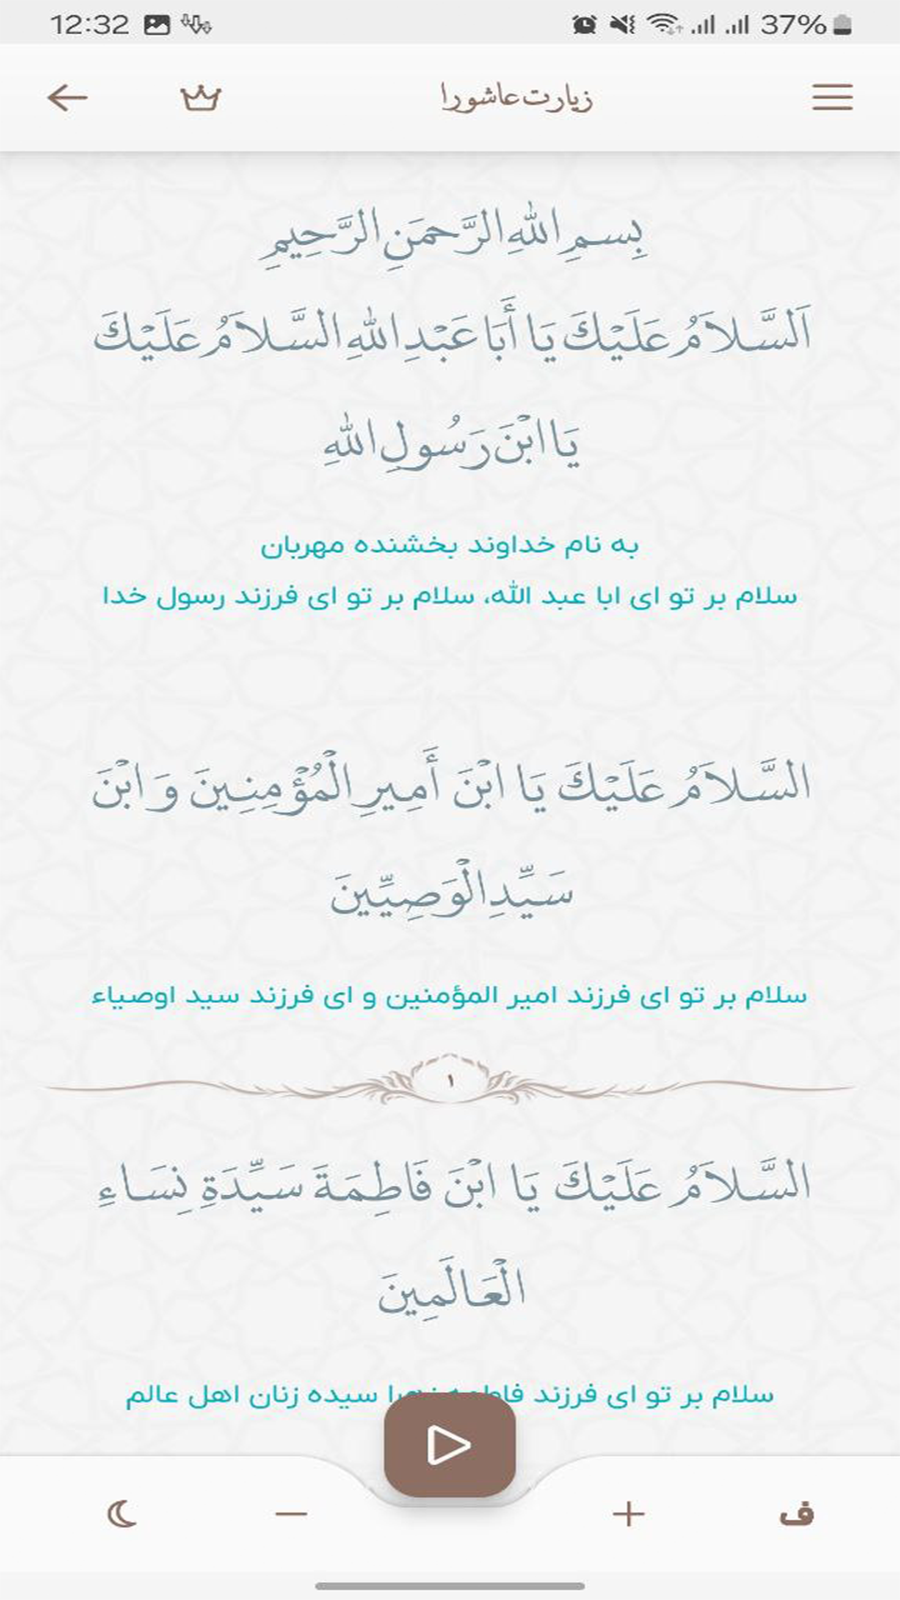 12:32
37%
زیارت عاشورا
بِسمِ اللهِ الرَّحمَنِ الرَّحِیمِ
اَلسَّلاَمُ عَلَیْکَ یَا أَبَا عَبْدِ اللهِ السَّلاَمُ عَلَیْکَ
یَا ابْنَ رَسُولِ اللهِ
به نام خداوند بخشنده مهربان
سلام بر تو ای ابا عبد الله، سلام بر تو ای فرزند رسول خدا
السَّلاَمُ عَلَیْکَ یَا ابْنَ أَمِیرِ الْمُؤْمِنِینَ وَ ابْنَ
سَیِّدِ الْوَصِیِّینَ
سلام بر تو ای فرزند امیر المؤمنین و ای فرزند سید اوصیاء
۱
السَّلاَمُ عَلَیْکَ یَا ابْنَ فَاطِمَةَ سَیِّدَةِ نِسَاءِ
الْعَالَمِینَ
سلام بر تو ای فرزند فاطمه زهرا سیده زنان اهل عالم
ف